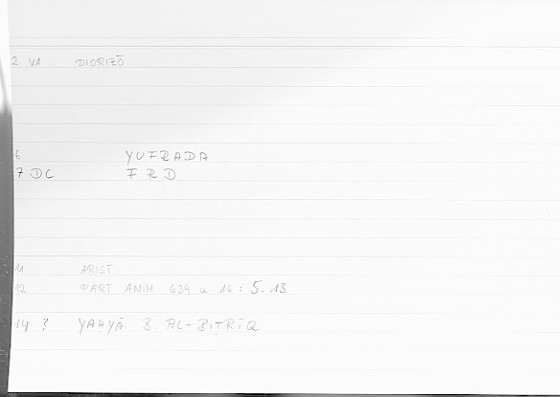 2 VA DIORIZŌ
6 YUFRADA
7 DC FRD
11 ARIST
12 PART ANIM 639 a 16 : 5.13
14 ? YAḤYĀ B. AL-BIṬRĪQ